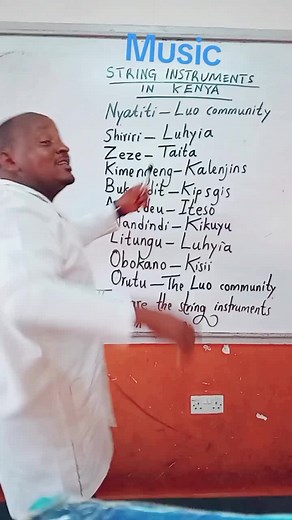 Music
STRING INSTRUMENTS
IN KENYA
Nyatiti – Luo community
Shiriri – Luhyia
Zeze – Taita
Kimengeng – Kalenjins
Kipsgis
Iteso
Kikuyu
Litungu – Luhyia
Obokano – Kisii
Orutu – The Luo community
the string instruments